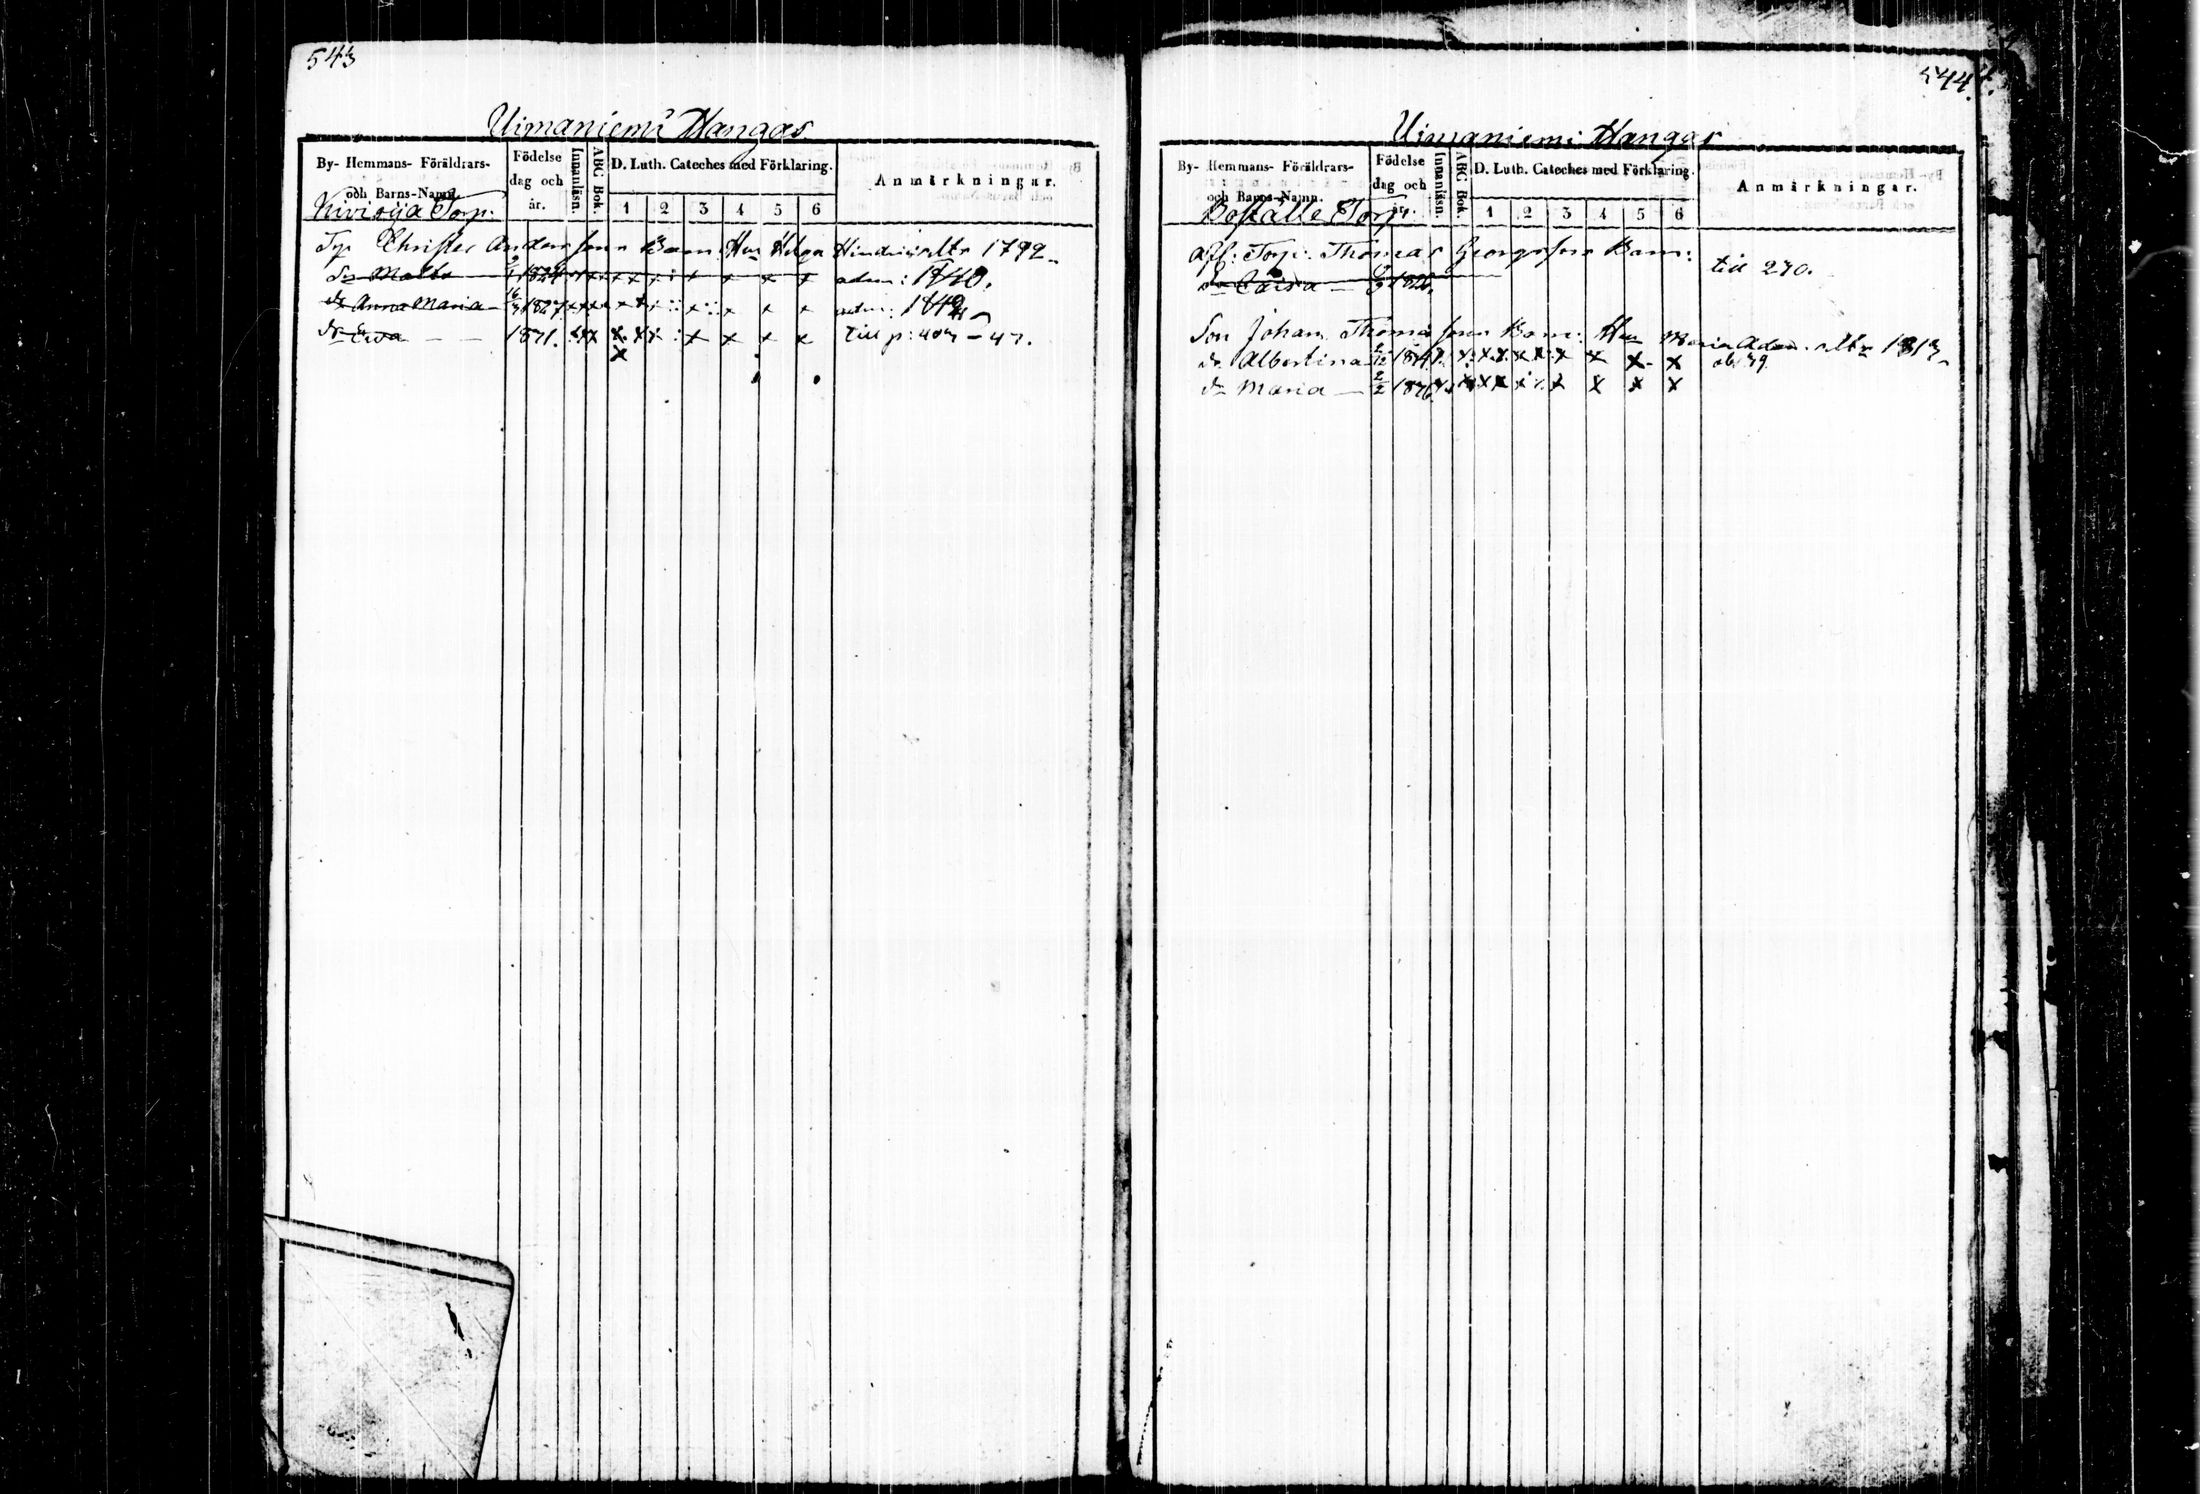 543
Uimaniemi Hangas
By- Hemmans- Föräldrars- och Barns-Namn.
Födelse dag och år.
Innanläsn.
ABC Bok.
D. Luth. Cateches med Förklaring.
1 2 3 4 5 6
Anmärkningar.
Torp:
Tp Christer Anders son Barn. Hu Helga Hindricsdtr 1792
dr Malta 1824 x x x x x x adm: 1840.
dr Anna Maria 16 1827 x x x x x x x adm:
dr Ewa 1831. x x x x x x x x Till p: 407 - 47.
x
544.
Uimaniemi Hangas
By- Hemmans- Föräldrars- och Barns-Namn.
Födelse dag och år.
Innanläsn.
ABC Bok.
D. Luth. Cateches med Förklaring.
1 2 3 4 5 6
Anmärkningar.
Boställe Torp.
Afl: Torp: Thomas Georgsson Barn:
dr Caisa till 270.
Son Johan Thomas son Barn: Hu Maria Adam. dtr 1813
dr Albertina x x x x x x x x
dr Maria 2/2 1836 x x x x x x x x